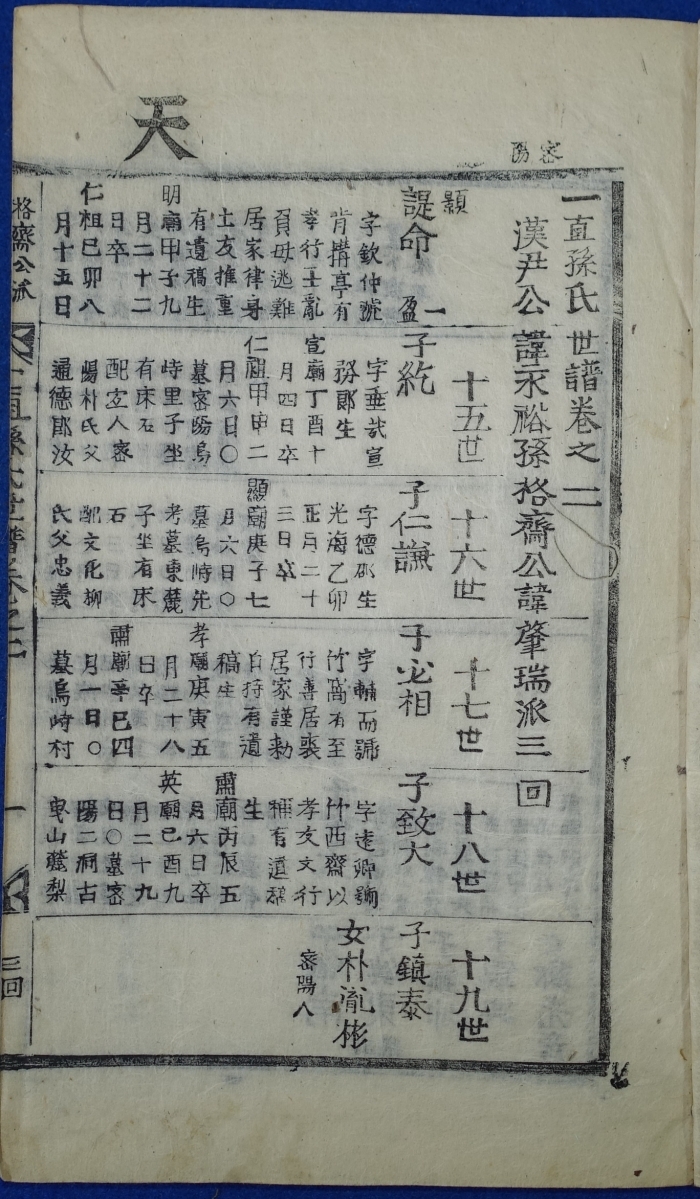 天
密陽
一直孫氏世譜卷之二
漢尹公諱永裕孫格齋公諱肇瑞派三回
顥
諟命
盈一
字欽仲號
肯搆亭有
孝行壬亂
負母逃難
居家律身
士友推重
有遺稿生
明廟甲子九
月二十二
日卒
仁祖己卯八
月十五日
十五世
子紇
字垂哉宣
務郞生
宣廟丁酉十
月四日卒
仁祖甲申二
月六日〇
墓密陽烏
峙里子坐
有床石
配宜人密
陽朴氏父
通德郞汝
十六世
子仁謙
字德卿生
光海乙卯
正月二十
三日卒
顯廟庚子七
月六日〇
墓烏峙先
考墓東麓
子坐有床
石
配文化柳
氏父忠義
十七世
子必相
字輔而號
竹窩有至
行善居喪
居家謹勅
自持有遺
稿生
孝廟庚寅五
月二十八
日卒
肅廟辛巳四
月一日〇
墓烏峙村
十八世
子致大
字遠卿號
竹西齋以
孝友文行
稱有遺稿
生
肅廟丙辰五
月六日卒
英廟己酉九
月二十九
日〇墓密
陽二洞古
曳山麓梨
十九世
子鎭泰
女朴胤彬
密陽人
格齋公派
一直孫氏世譜卷之二
一
三回